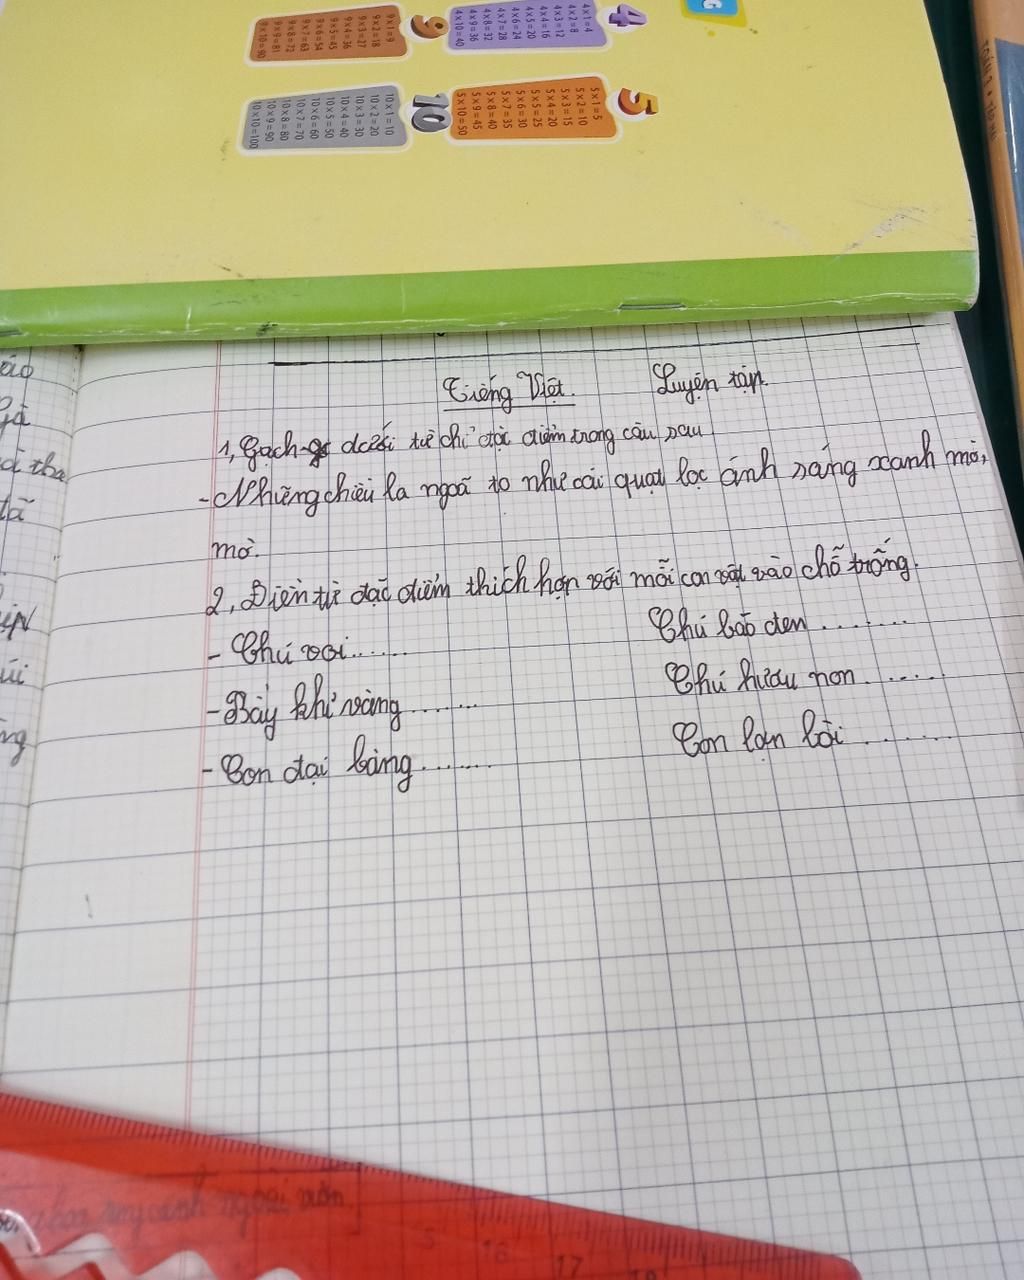 G
4
4 x 1 = 4
4 x 2 = 8
4 x 3 = 12
4 x 4 = 16
4 x 5 = 20
4 x 6 = 24
4 x 7 = 28
4 x 8 = 32
4 x 9 = 36
4 x 10 = 40
9
9 x 1 = 9
9 x 2 = 18
9 x 3 = 27
9 x 4 = 36
9 x 5 = 45
9 x 6 = 54
9 x 7 = 63
9 x 8 = 72
9 x 9 = 81
9 x 10 = 90
5
5 x 1 = 5
5 x 2 = 10
5 x 3 = 15
5 x 4 = 20
5 x 5 = 25
5 x 6 = 30
5 x 7 = 35
5 x 8 = 40
5 x 9 = 45
5 x 10 = 50
10
10 x 1 = 10
10 x 2 = 20
10 x 3 = 30
10 x 4 = 40
10 x 5 = 50
10 x 6 = 60
10 x 7 = 70
10 x 8 = 80
10 x 9 = 90
10 x 10 = 100
Tiếng Việt. Luyện tập.
1, Gạch dưới từ chỉ đặc điểm trong câu sau
- Những chiếc lá ngoã to như cái quạt lọc ánh sáng xanh mờ,
mờ.
2, Điền từ đặc điểm thích hợp với mỗi con vật vào chỗ trống.
- Chú voi......
Chú báo đen........
- Bày khỉ vàng.......
Chú hươu non......
- Con đại bàng.......
Con lợn lòi.........
16
17
18